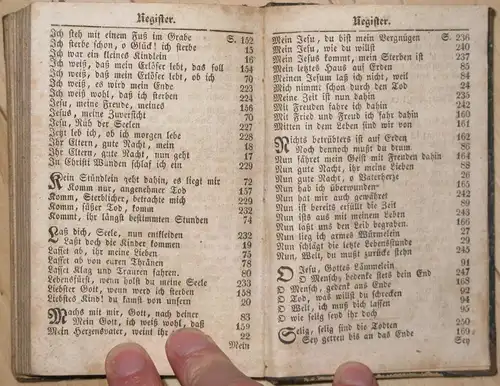 Register.
Ich steh mit einem Fuß im Grabe S. 152
Ich sterbe schon, o Glück! ich sterbe 15
Ich war ein kleines Kindlein 16
Ich weiß, daß mein Erlöser lebt, das soll 154
Ich weiß, daß mein Erlöser lebt, ob ich 70
Ich weiß, es wird mein Ende 223
Ich weiß wohl, daß ich sterben 224
Jesu, meine Freude, meines 156
Jesus, meine Zuversicht 70
Jesu, Ruh der Seelen 227
Jetzt leb ich, ob ich morgen lebe 228
Ihr Eltern, gute Nacht, mein 18
Ihr Eltern, gute Nacht, nun geht 17
In Christi Wunden schlaf ich ein 229
Kein Stündlein geht dahin, es liegt mir 72
Komm nur, angenehmer Tod 157
Komm, Sterblicher, betrachte mich 229
Komm, süßer Tod, komm 232
Kommt, ihr längst bestimmten Stunden 74
Laß dich, Seele, nun entkleiden 232
Laßt doch die Kinder kommen 19
Lasset ab, ihr meine Lieben 75
Lasset ab von euren Thränen 78
Lasset Klag und Trauren fahren. 80
Lebensfürst, wenn wollst du meine Seele 233
Liebster Gott, wenn werd ich sterben 158
Liebstes Kind! du kannst von unsern 20
Machs mit mir, Gott, nach deiner 83
Mein Gott, ich weiß wohl, daß 159
Mein Herzensvater, weint ihr 22
Mein
Register.
Mein Jesu, du bist mein Vergnügen S. 236
Mein Jesu, wie du willst 240
Mein Jesus kommt, mein Sterben ist 237
Mein letztes Haus auf Erden 85
Meinen Jesum laß ich nicht, weil 84
Mich nimmt schon durch den Tod 24
Meine Zeit ist nun dahin 235
Mit Freuden fahre ich dahin 242
Mit Fried und Freud ich fahr dahin 160
Mitten in dem Leben sind wir von 161
Nichts betrübters ist auf Erden 162
Noch dennoch mußt du drum 86
Nun fähret mein Geist mit Freuden dahin 164
Nun gute Nacht, ihr meine Lieben 88
Nun gute Nacht, o Vaterherze 26
Nun hab ich überwunden 165
Nun hat mir auch gewähret 242
Nun ist bereits erfüllt die Zeit 89
Nun ists aus mit meinem Leben 243
Nun laßt uns den Leib begraben 166
Nun lieg ich armes Würmelein 27
Nun schlägt die letzte Lebensstunde 29
Nun, Welt, du mußt zurücke stehn 245
O Jesu, Gottes Lämmelein 91
O Mensch, gedenke stets dein End 247
O Mensch, gedenk ans Ende 168
O Tod, was willt du schrecken 92
O Welt, ich muß dich lassen 94
O wie selig seyd ihr doch 95
Selig, selig sind die Todten 250
Sey getreu bis an das Ende 169
Sey